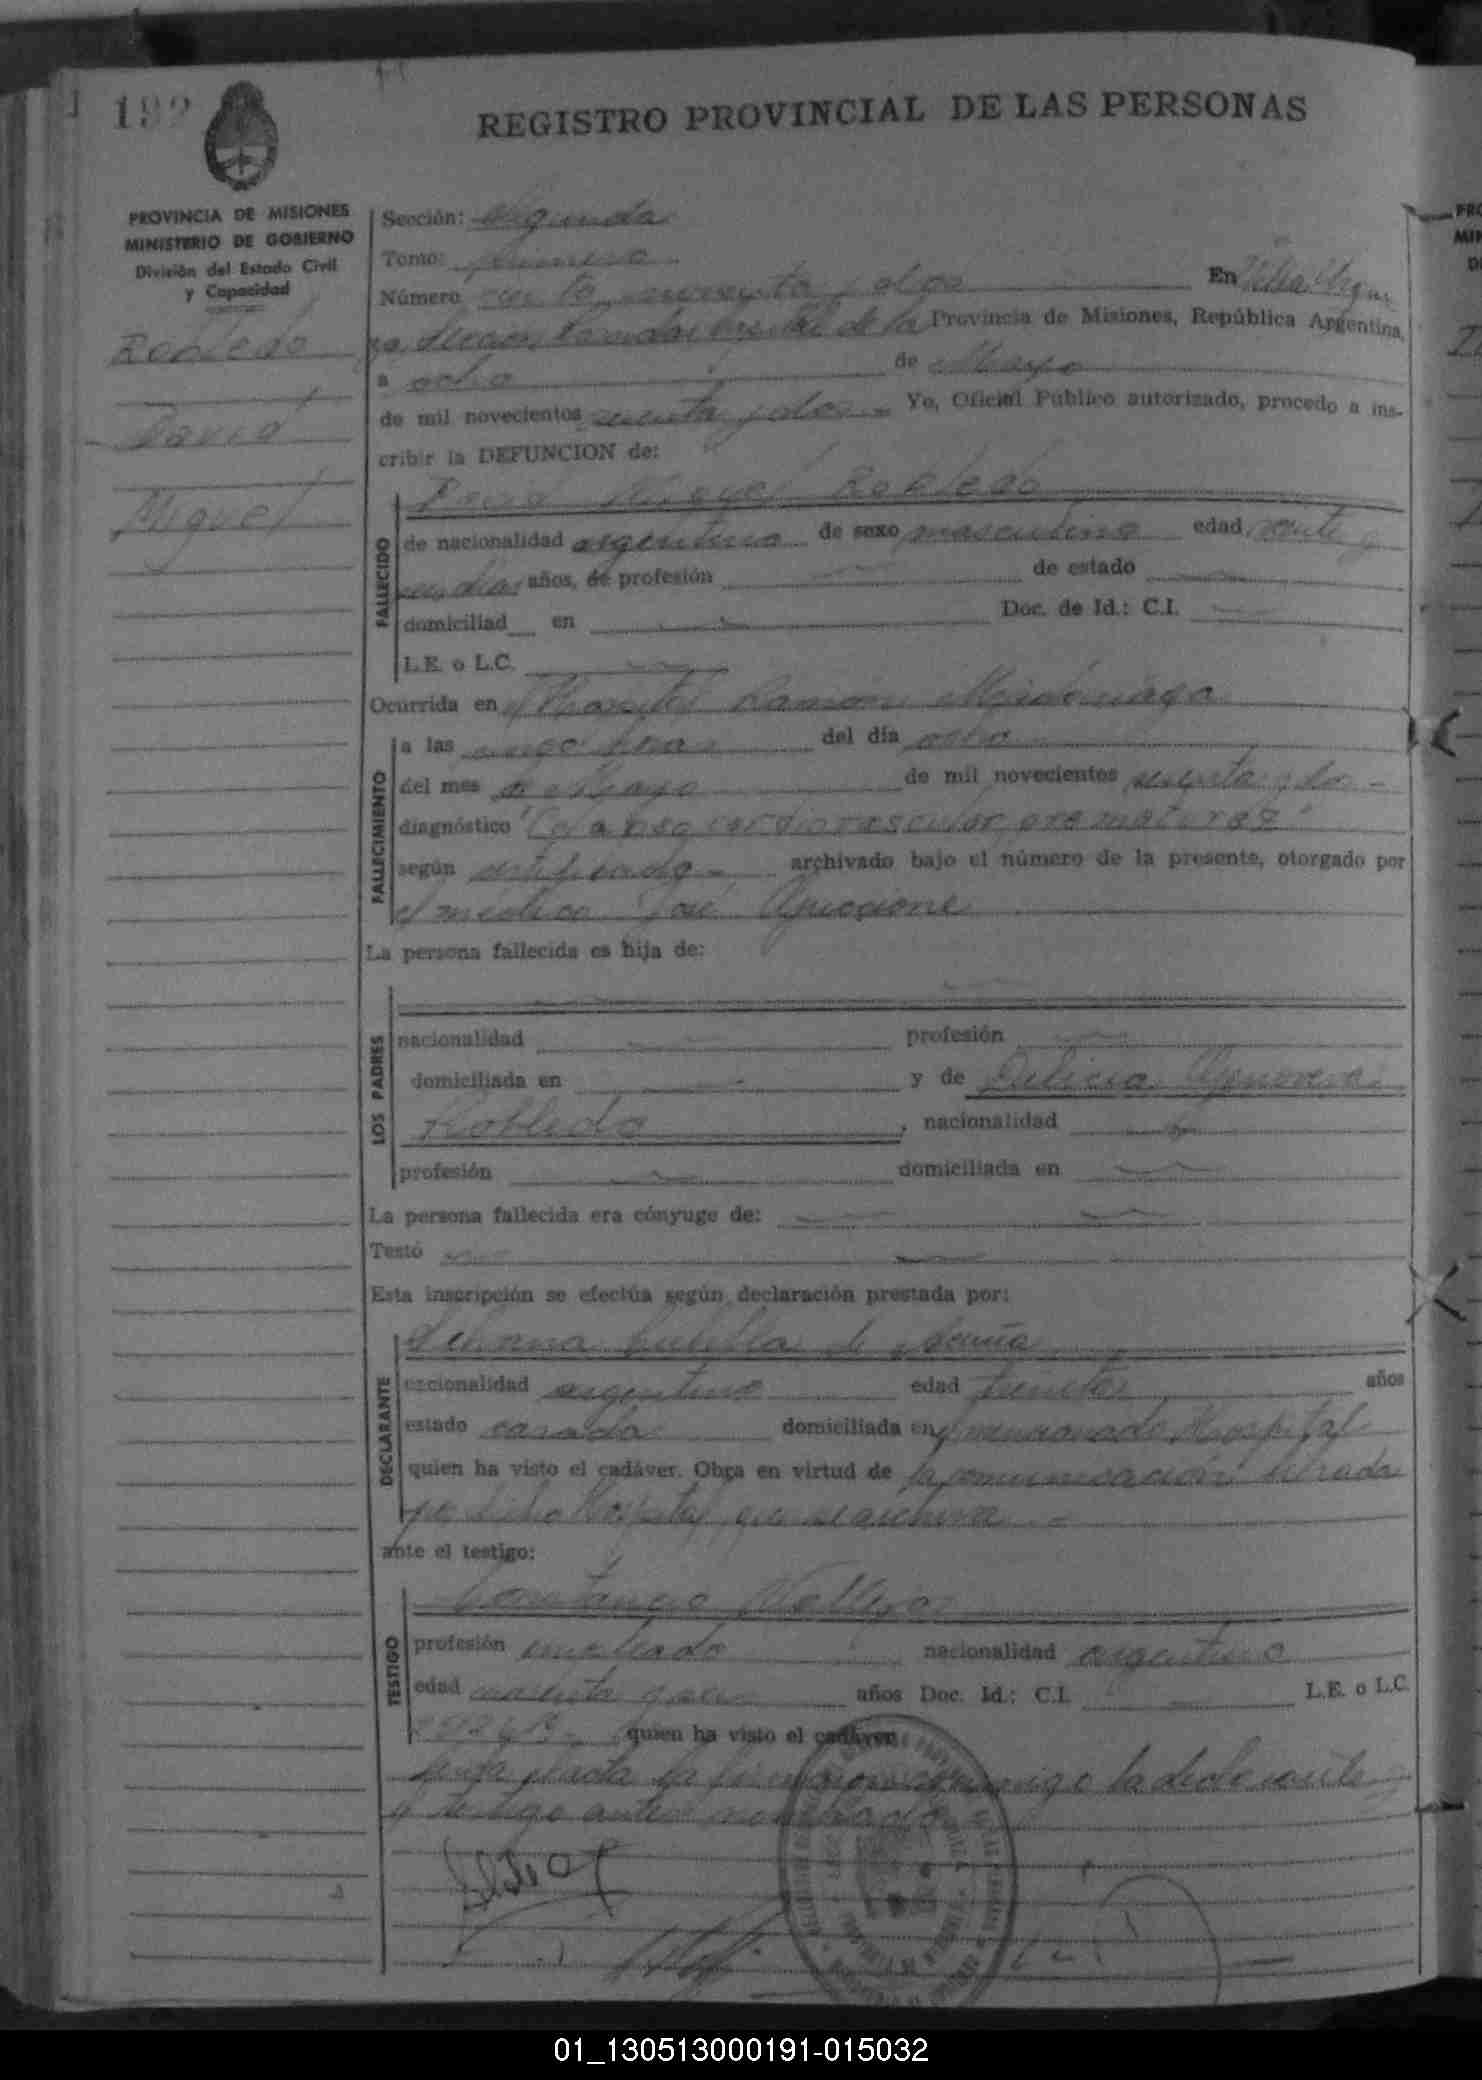 192
REGISTRO PROVINCIAL DE LAS PERSONAS
PROVINCIA DE MISIONES
MINISTERIO DE GOBIERNO
División del Estado Civil
y Capacidad
Robledo
David
Miguel
Sección: Segunda
Tomo: primero
Número ciento noventa y dos En Villa Urqui
za, sección Posadas, Capital de la Provincia de Misiones, República Argentina,
a ocho de Mayo
de mil novecientos sesenta y dos Yo, Oficial Público autorizado, procedo a ins-
cribir la DEFUNCION de:
FALLECIDO
David Miguel Robledo
de nacionalidad argentino de sexo masculino edad veinte y
días años, de profesión de estado
domiciliad en Doc. de Id.: C.I.
L.E. o L.C.
Ocurrida en el Hospital Ramón Madariaga
FALLECIMIENTO
a las cinco horas del día ocho
del mes de Mayo de mil novecientos sesenta y dos -
diagnóstico "Colapso cardiovascular, prematurez"
según certificado - archivado bajo el número de la presente, otorgado por
el médico José
La persona fallecida es hija de:
LOS PADRES
nacionalidad profesión
domiciliada en y de Delicia Genoveva
Robledo , nacionalidad
profesión domiciliada en
La persona fallecida era cónyuge de:
Testó
Esta inscripción se efectúa según declaración prestada por:
DECLARANTE
de Acuña
nacionalidad argentina edad treinta años
estado casada domiciliada en el mencionado Hospital
quien ha visto el cadáver. Obra en virtud de la comunicación librada
por dicho Hospital que se archiva -
ante el testigo:
TESTIGO
Constancio Vallejos
profesión empleado nacionalidad argentino
edad años Doc. Id.: C.I. L.E. o L.C.
quien ha visto el cadáver
Leída el acta la firman conmigo la declarante
y testigo antes nombrado
01_130513000191-015032